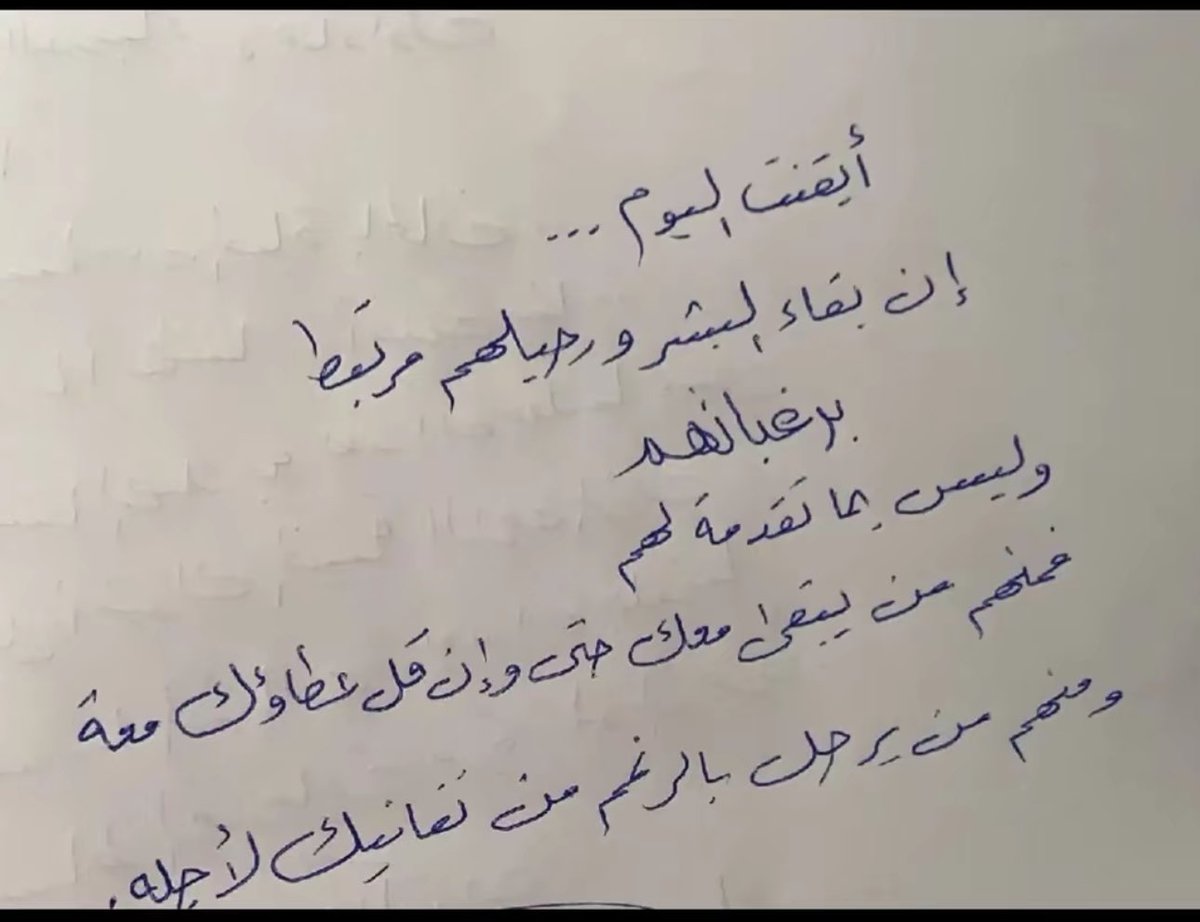 أيقنت اليوم ...
إن بقاء البشر ورحيلهم مرتبط
برغباتهم
وليس بما تقدمة لهم
فمنهم من يبقى معك حتى وإن قل عطاؤك معة
ومنهم من يرحل بالرغم من تفانيك لأجله.